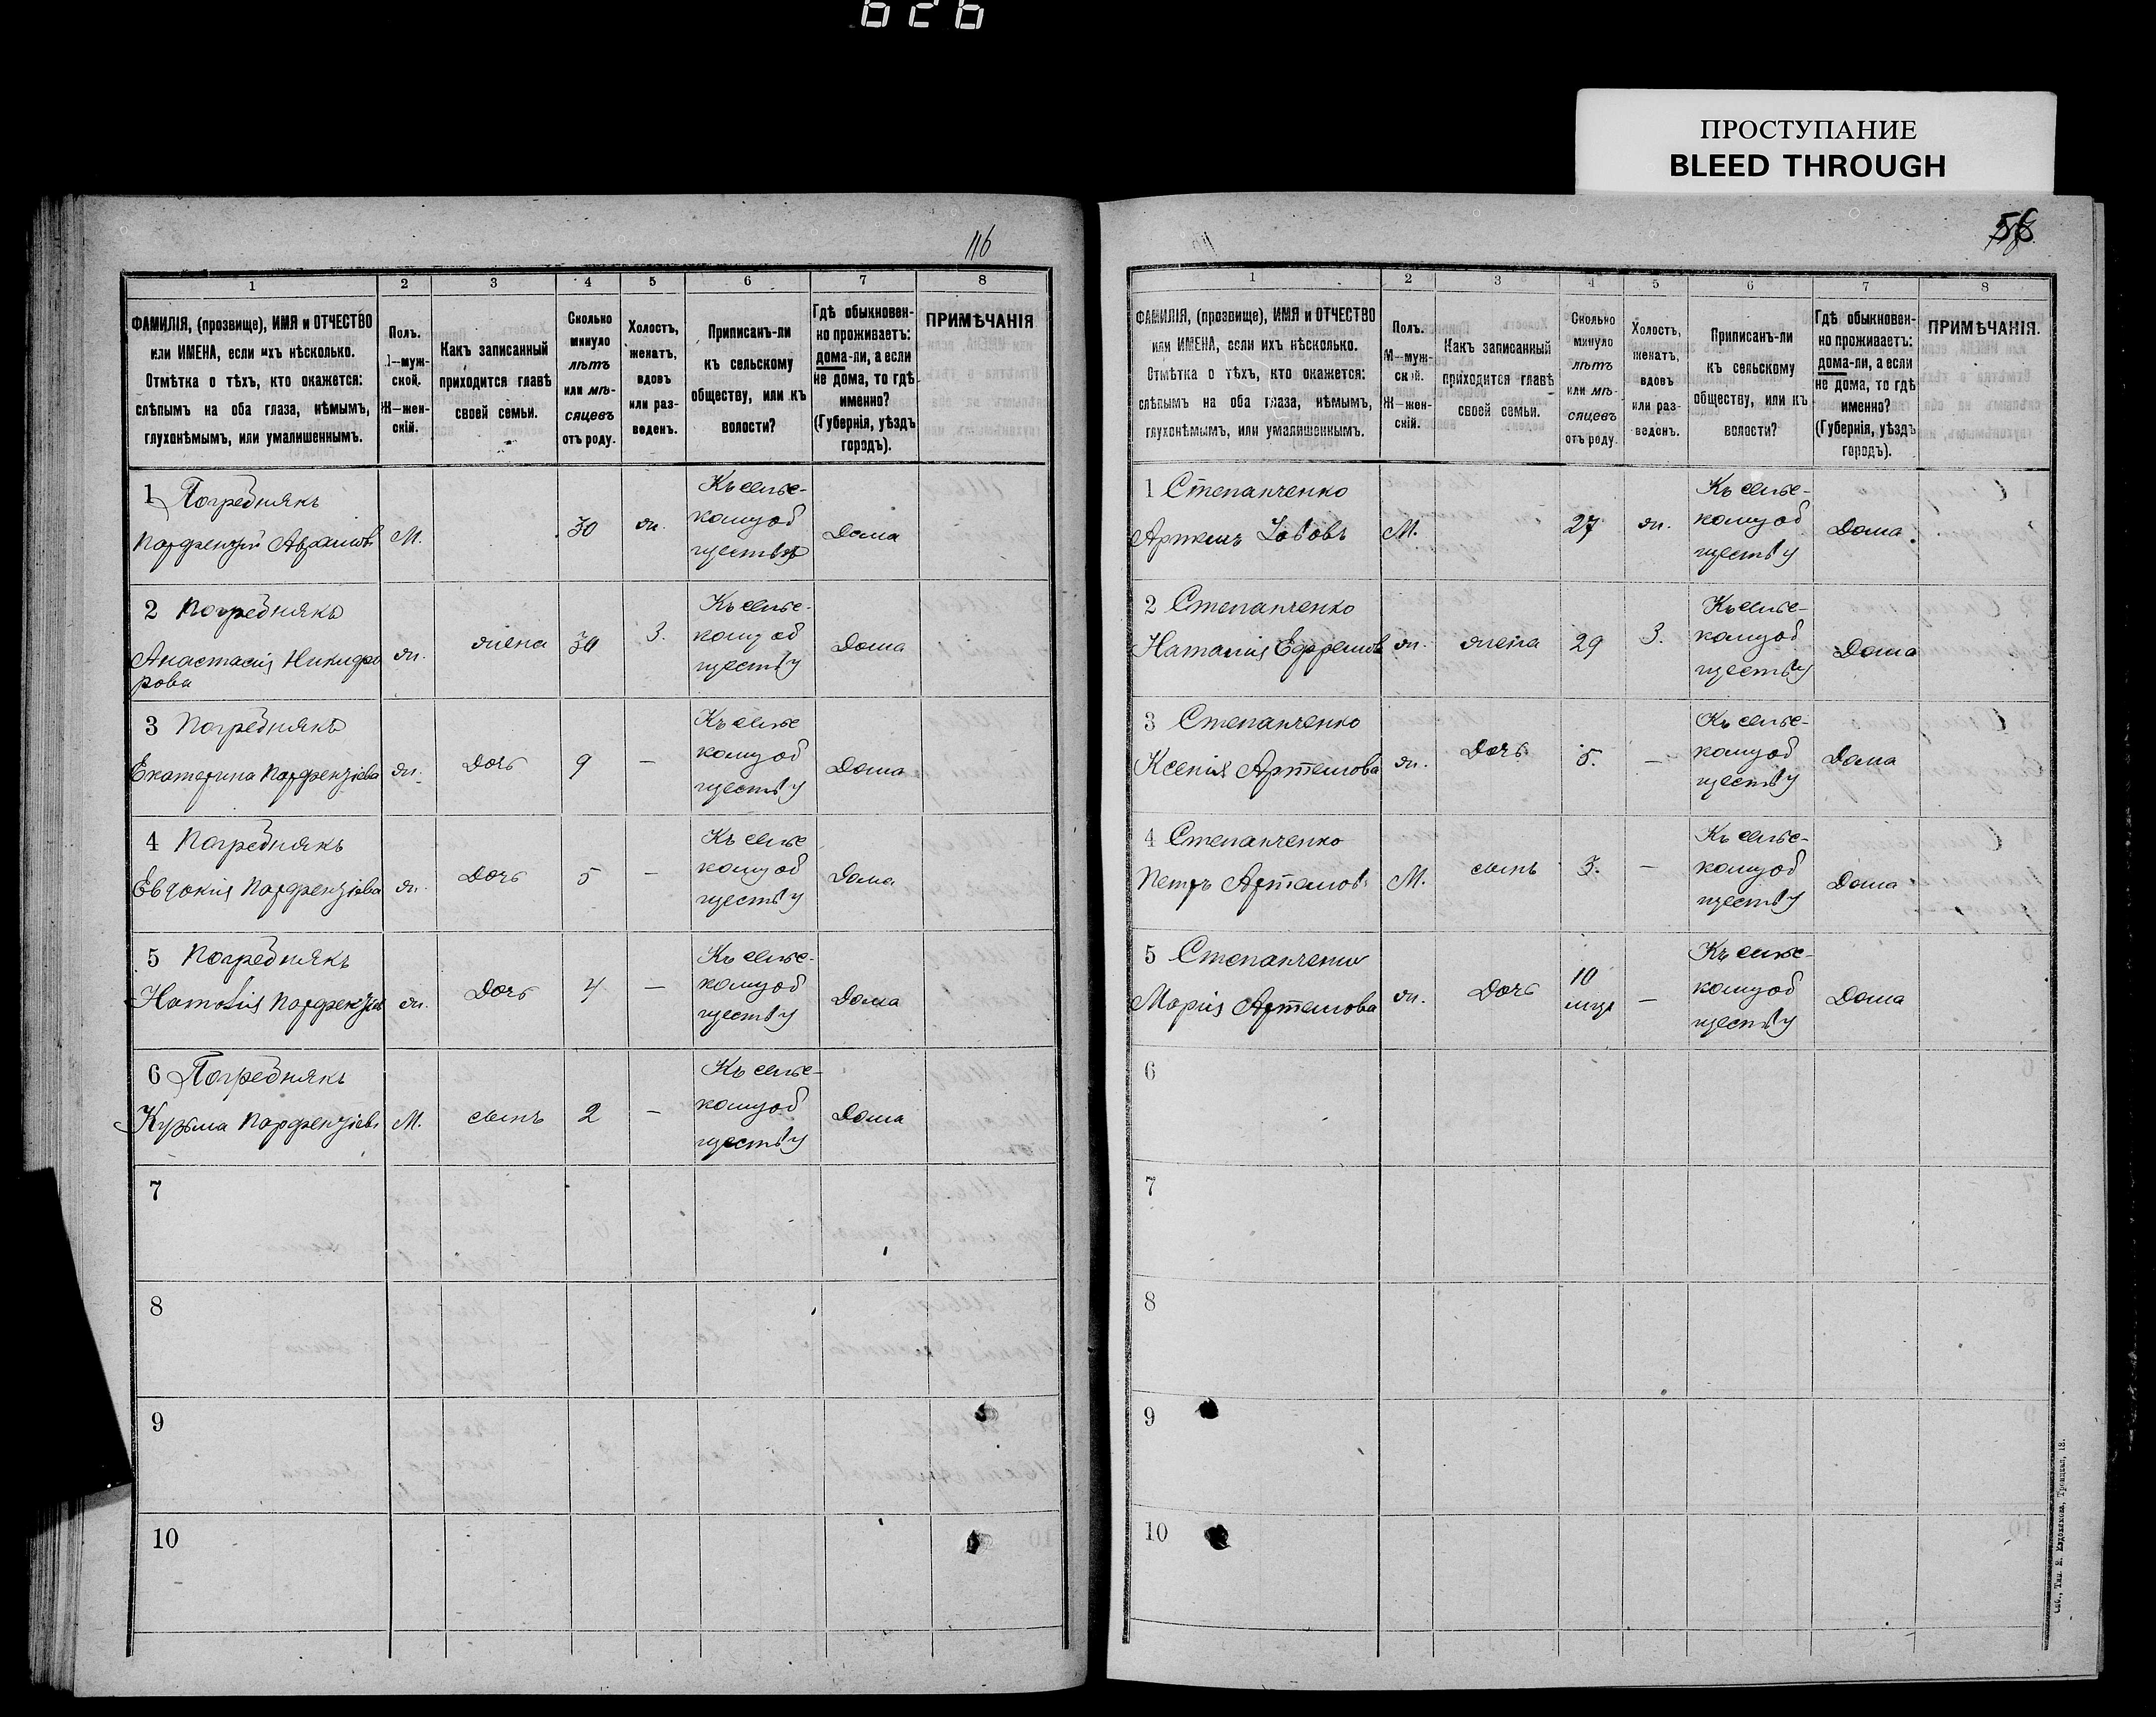 626
ПРОСТУПАНИЕ
BLEED THROUGH
116
1 2 3 4 5 6 7 8
ФАМИЛІЯ, (прозвище), ИМЯ и ОТЧЕСТВО
или ИМЕНА, если ихъ нѣсколько.
Отмѣтка о тѣхъ, кто окажется:
слѣпымъ на оба глаза, нѣмымъ,
глухонѣмымъ, или умалишеннымъ.
Полъ.
М—муж-
ской.
Ж—жен-
скій.
Какъ записанный
приходится главѣ
своей семьи.
Сколько
минуло
лѣтъ
или мѣ-
сяцевъ
отъ роду.
Холостъ,
женатъ,
вдовъ
или раз-
веденъ.
Приписанъ-ли
къ сельскому
обществу, или къ
волости?
Гдѣ обыкновен-
но проживаетъ:
дома-ли, а если
не дома, то гдѣ
именно?
(Губернія, уѣздъ
городъ).
ПРИМѢЧАНІЯ
1 Погребнякъ
Парфентій Авраамовъ М. 30 ж. Къ сельс-
кому об
ществу Дома
2 Погребнякъ
Анастасія Никифо
рова ж. жена 30 З. Къ сельс-
кому об
ществу Дома
3 Погребнякъ
Екатерина Парфентіева ж. Дочь 9 — Къ сельс
кому об
ществу Дома
4 Погребнякъ
Евдокія Парфентіева ж. Дочь 5 — Къ сельс
кому об
ществу Дома
5 Погребнякъ
Наталія Парфентіев ж. Дочь 4 — Къ сельс-
кому об
ществу Дома
6 Погребнякъ
Кузьма Парфентіевъ М. сынъ 2 — Къ сельс-
кому об
ществу Дома
7
8
9
10
58
1 2 3 4 5 6 7 8
ФАМИЛІЯ, (прозвище), ИМЯ и ОТЧЕСТВО
или ИМЕНА, если ихъ нѣсколько.
Отмѣтка о тѣхъ, кто окажется:
слѣпымъ на оба глаза, нѣмымъ,
глухонѣмымъ, или умалишеннымъ.
Полъ.
М—муж-
ской.
Ж—жен-
скій.
Какъ записанный
приходится главѣ
своей семьи.
Сколько
минуло
лѣтъ
или мѣ-
сяцевъ
отъ роду.
Холостъ,
женатъ,
вдовъ
или раз-
веденъ.
Приписанъ-ли
къ сельскому
обществу, или къ
волости?
Гдѣ обыкновен-
но проживаетъ:
дома-ли, а если
не дома, то гдѣ
именно?
(Губернія, уѣздъ
городъ).
ПРИМѢЧАНІЯ.
1 Степанченко
Артемъ М. 27 ж. Къ сельс-
кому об
ществу Дома.
2 Степанченко
Наталія Ефремов ж. жена 29 З. Къ сельс-
кому об
ществу Дома
3 Степанченко
Ксенія Артемова ж. Дочь 5. — Къ сельс-
кому об
ществу Дома
4 Степанченко
Петръ Артемовъ М. сынъ 3. — Къ сельс-
кому об
ществу Дома
5 Степанченко
Марія Артемова ж. Дочь 10
мцъ — Къ сельс-
кому об
ществу Дома
6
7
8
9
10